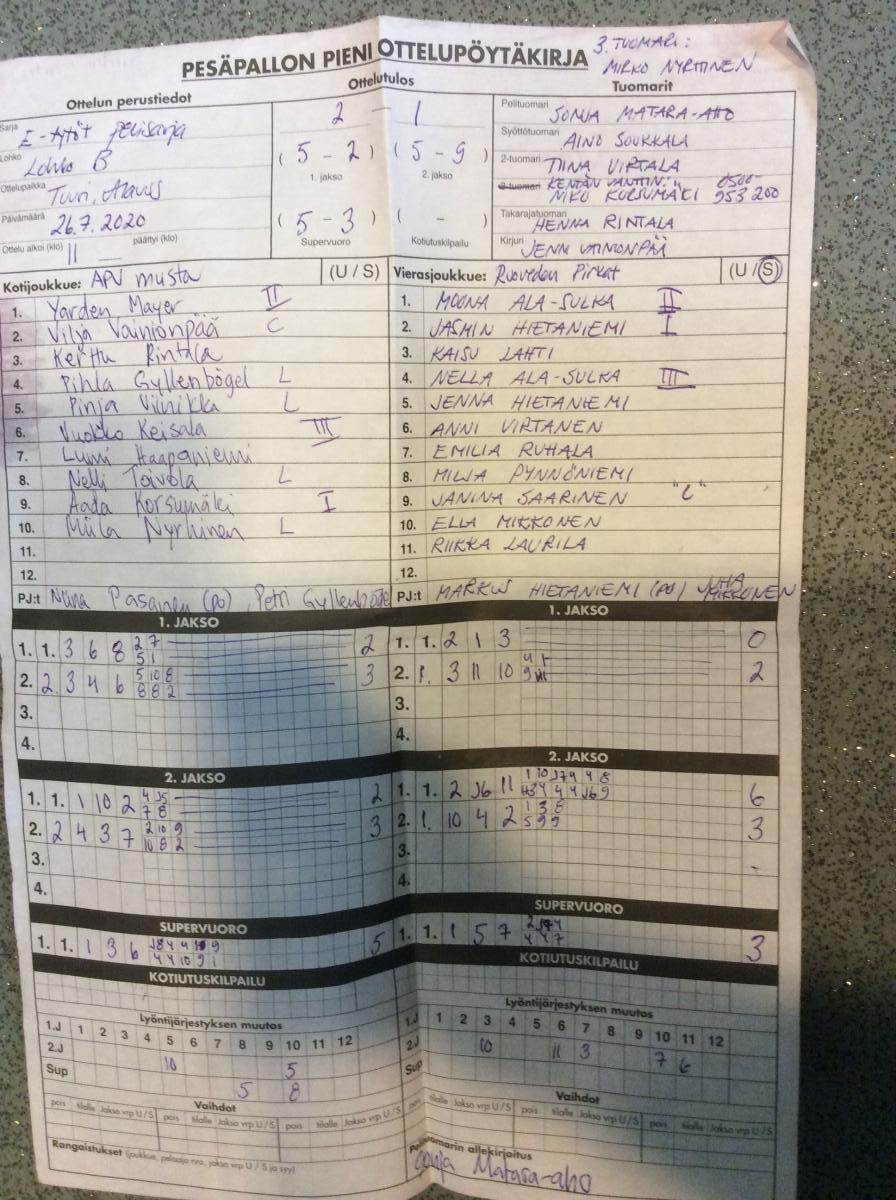 PESÄPALLON PIENI OTTELUPÖYTÄKIRJA
3. TUOMARI:
MIRKO NYRHINEN
Ottelun perustiedot
Sarja E-tytöt pelisarja
Lohko Lohko B
Ottelupaikka Tuuri, Alavus
Päivämäärä 26.7.2020
Ottelu alkoi (klo) 11 päättyi (klo)
Ottelutulos
2 – 1
(5 – 2) (5 – 9)
1. jakso 2. jakso
(5 – 3) ( – )
Supervuoro Kotiutuskilpailu
Tuomarit
Pelituomari SONJA MATARA-AHO
Syöttötuomari AINO SOUKKALA
2-tuomari TIINA VIRTALA
3-tuomari KENTÄN VANTTIN: 0500-
NIKO KORSUMÄKI 953 200
Takarajatuomari HENNA RINTALA
Kirjuri JENNI VAINIONPÄÄ
Kotijoukkue: APV musta (U / S)
1. Yarden Mayer II
2. Vilja Vainionpää C
3. Kerttu Rintala
4. Pihla Gyllenbögel L
5. Pinja Viinikka L
6. Vuokko Keisala III
7. Lumi Haapaniemi
8. Nelli Toivola L
9. Aada Korsumäki I
10. Miila Nyrhinen L
11.
12.
PJ:t Niina Pasanen (po), Petri Gyllenbögel
Vierasjoukkue: Ruoveden Pirkat (U / S)
1. MOONA ALA-SULKA II
2. JASMIN HIETANIEMI I
3. KAISU LAHTI
4. NELLA ALA-SULKA III
5. JENNA HIETANIEMI
6. ANNI VIRTANEN
7. EMILIA RUHALA
8. MILJA PYNNÖNIEMI
9. JANINA SAARINEN "L"
10. ELLA MIKKONEN
11. RIIKKA LAURILA
12.
PJ:t MARKUS HIETANIEMI (PO) JUHA MIKKONEN
1. JAKSO
1. 1. 3 6 8 2 7 2
5 1
2. 2. 3 4 6 5 10 8 3
8 8 2
3.
4.
1. JAKSO
1. 1. 2 1 3 0
2. 1. 3 11 10 2
3.
4.
2. JAKSO
1. 1. 1 10 2 4 J5 2
7 8
2. 2 4 3 7 2 10 9 3
10 8 2
3.
4.
2. JAKSO
1. 1. 2 J6 11 6
2. 1. 10 4 2 1 3 8 3
5 9 9
3.
4.
SUPERVUORO
1. 1. 1 3 6 5
4 4 10 9 1
SUPERVUORO
1. 1. 1 5 7 3
4 4 7
KOTIUTUSKILPAILU
KOTIUTUSKILPAILU
Lyöntijärjestyksen muutos
1.J 1 2 3 4 5 6 7 8 9 10 11 12
2.J 10 5
Sup 5 8
Lyöntijärjestyksen muutos
1.J 1 2 3 4 5 6 7 8 9 10 11 12
2.J 10 11 3 7 6
Sup
Vaihdot
pois tilalle Jakso vrp U / S pois tilalle Jakso vrp U / S pois tilalle Jakso vrp U / S
Vaihdot
pois tilalle Jakso vrp U / S pois tilalle Jakso vrp U / S pois tilalle Jakso vrp U / S
Rangaistukset (joukkue, pelaaja nro, jakso vrp U / S ja syy)
Pelituomarin allekirjoitus
Sonja Matara-aho